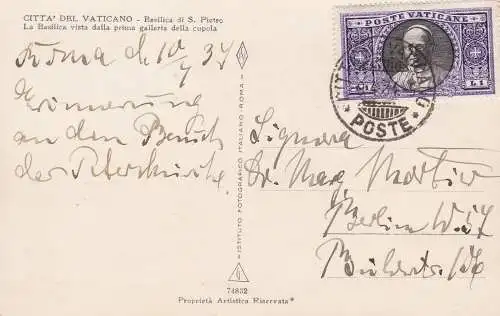 CITTA' DEL VATICANO - Basilica di S. Pietro
La Basilica vista dalla prima galleria della cupola
Roma d. 10/7 34
Erinnerung
an den Besuch
der Peterskirche
POSTE VATICANE
L1 L1
POSTE
ISTITUTO FOTOGRAFICO ITALIANO - ROMA
Signora
Dr. Marg Mortier
Berlin W. 57
74832
Proprietà Artistica Riservata